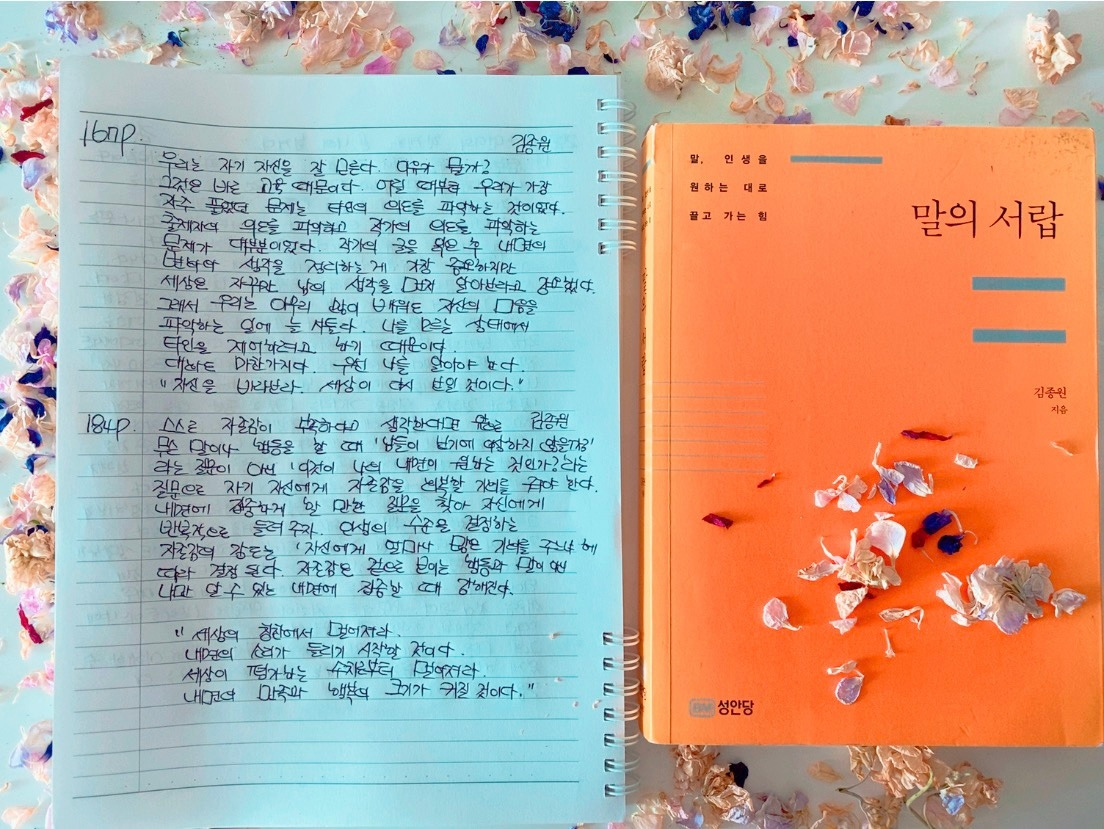 167p.
김종원
우리는 자기 자신을 잘 모른다. 이유가 뭘까?
그것은 바로 교육 때문이다. 어릴 때부터 우리가 가장
자주 풀었던 문제는 타인의 의도를 파악하는 것이었다.
출제자의 의도를 파악하고 작가의 의도를 파악하는
문제가 대부분이었다. 작가의 글을 읽은 후 내면의
변화와 생각을 정리하는게 가장 중요하지만
세상은 자꾸만 남의 생각을 먼저 알아보라고 강요했다.
그래서 우리는 아무리 많이 배워도 자신의 마음을
파악하는 일에 늘 서툴다. 나를 모르는 상태에서
타인을 제어하려고 하기 때문이다.
대화도 마찬가지다. 우선 나를 알아야 한다.
"자신을 바라보라. 세상이 다시 보일 것이다."
184p.
스스로 자존감이 부족하다고 생각한다면 김종원
무슨 말이나 행동을 할 때 '남들이 보기에 이상하지 않을까?'
라는 질문이 아닌 '이것이 나의 내면이 원하는 것인가?'라는
질문으로 자기 자신에게 자존감을 회복할 기회를 주어야 한다.
내면에 집중하게 할 만한 질문을 찾아 자신에게
반복적으로 들려주자. 인생의 수준을 결정하는
자존감의 강도는 '자신에게 얼마나 많은 기회를 주느냐'에
따라 결정된다. 자존감은 겉으로 보이는 행동과 말이 아닌
나만 알 수 있는 내면에 집중할 때 강해진다.
"세상의 칭찬에서 멀어져라.
내면의 소리가 들리기 시작할 것이다.
세상이 평가하는 수치로부터 멀어져라.
내면의 만족과 행복의 크기가 커질 것이다."
말, 인생을
원하는 대로
끌고 가는 힘
말의 서랍
김종원
지음
BM 성안당